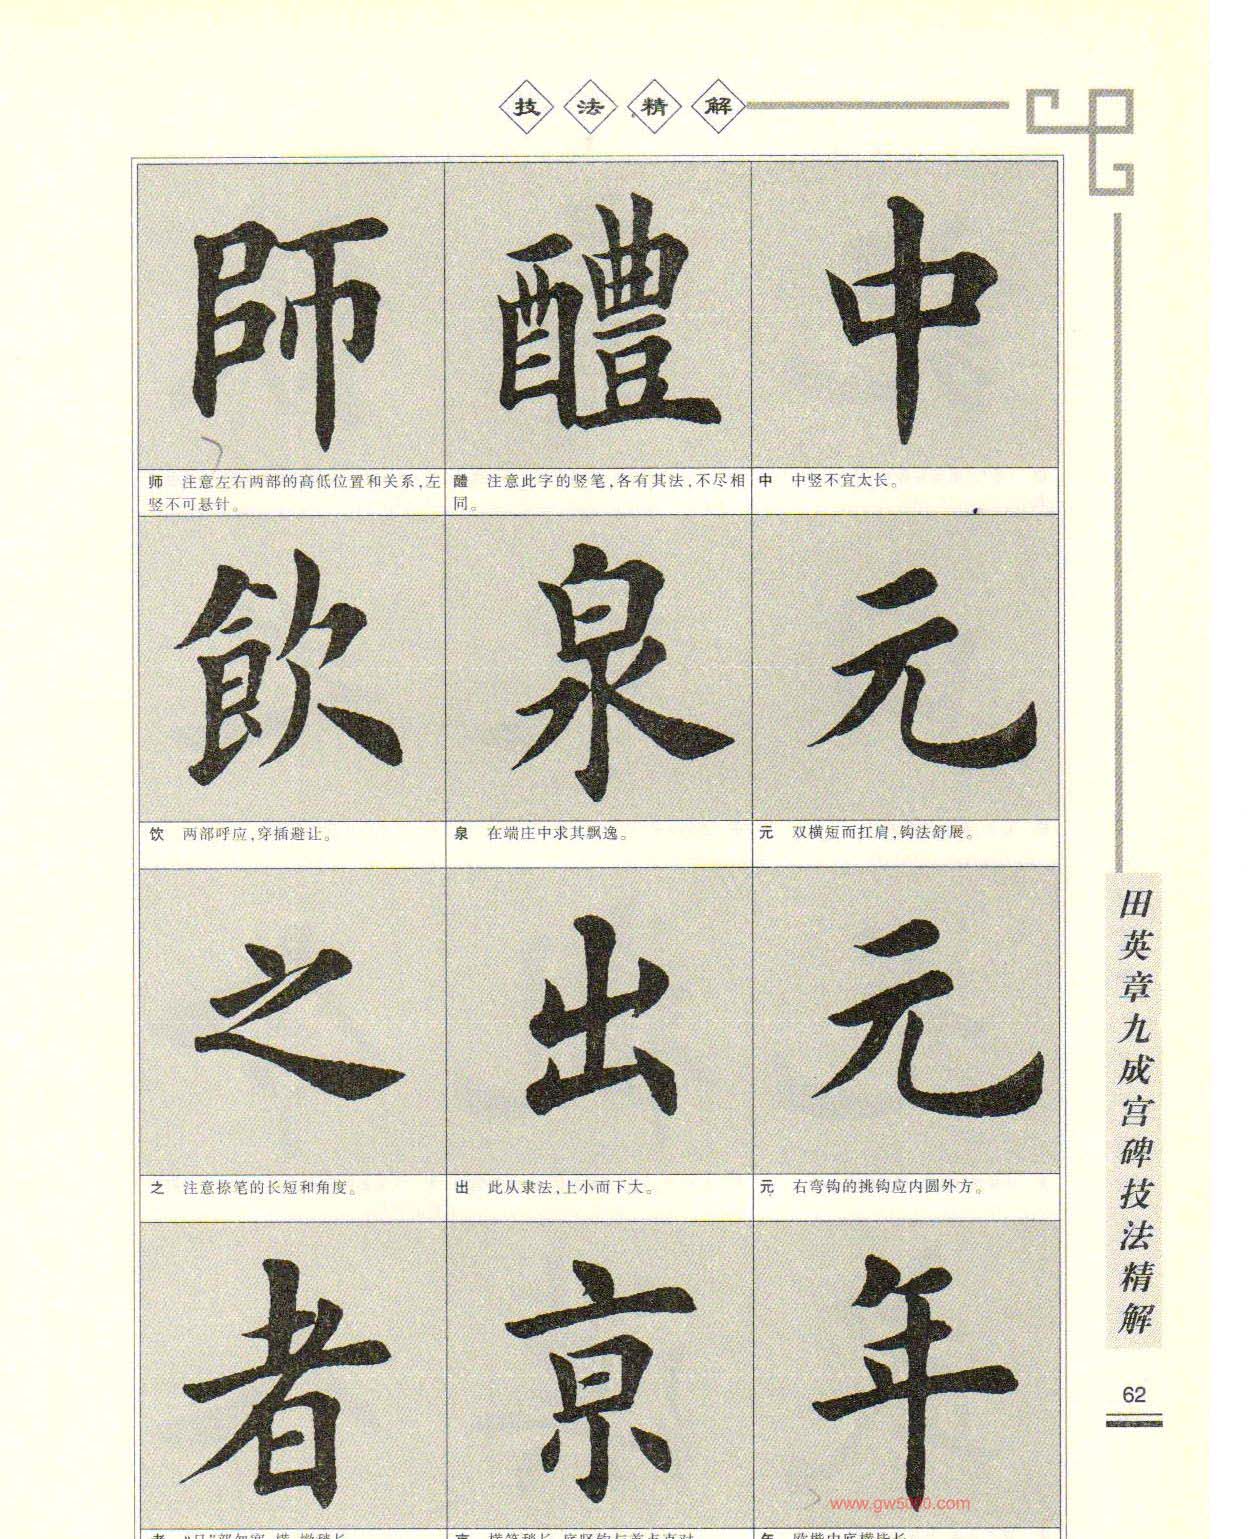 技法精解
師 醴 中
师 注意左右两部的高低位置和关系,左
竖不可悬针。
醴 注意此字的竖笔,各有其法,不尽相
同。
中 中竖不宜太长。
飲 泉 元
饮 两部呼应,穿插避让。
泉 在端庄中求其飘逸。
元 双横短而扛肩,钩法舒展。
之 出 元
之 注意捺笔的长短和角度。
出 此从隶法,上小而下大。
元 右弯钩的挑钩应内圆外方。
者 京 年
田英章九成宫碑技法精解
62
www.gw5000.com